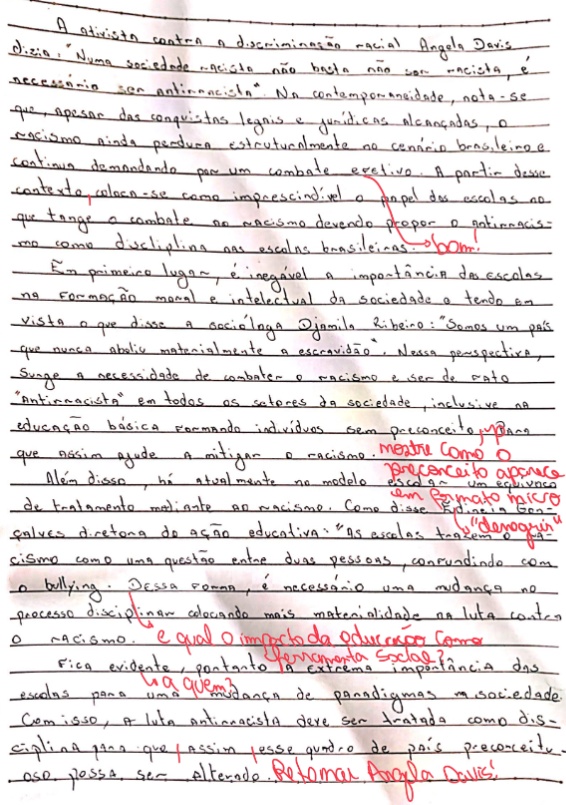 A ativista contra a discriminação racial Angela Davis
dizia: "Numa sociedade racista não basta não ser racista, é
necessário ser antirracista". Na contemporaneidade, nota-se
que, apesar das conquistas legais e jurídicas alcançadas, o
racismo ainda perdura estruturalmente no cenário brasileiro e
continua demandando por um combate efetivo. A partir desse
contexto, coloca-se como imprescindível o papel das escolas no
que tange o combate ao racismo devendo propor o antirracis-
mo como discliplina nas escolas brasileiras. bom!
Em primeiro lugar, é inegável a importância das escolas
na formação moral e intelectual da sociedade e tendo em
vista o que disse a socióloga Djamila Ribeiro: "Somos um país
que nunca aboliu materialmente a escravidão". Nessa perspectiva,
surge a necessidade de combater o racismo e ser de fato
"antirracista" em todos os setores da sociedade, inclusive na
educação básica formando indivíduos sem preconceito, para
que assim ajude a mitigar o racismo. mostre como o
preconceito aparece
Além disso, há atualmente no modelo escolar um equívoco
em formato micro
de tratamento mediante ao racismo. Como disse Gon-
"denegrir"
çalves diretora do ação educativa: "As escolas trazem o ra-
cismo como uma questão entre duas pessoas, confundindo com
o bullying. Dessa forma, é necessário uma mudança no
processo disciplinar colocando mais materialidade na luta contra
o racismo. e qual o impacto da educação como
ferramenta social?
Fica evidente, portanto a extrema importância das
a quem?
escolas para uma mudança de paradigmas na sociedade.
Com isso, a luta antirracista deve ser tratada como dis-
ciplina para que, assim, esse quadro de país preconceitu-
oso, possa ser alterado. Retomar Angela Davis!